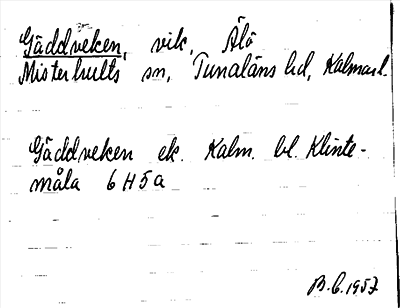 Gäddveken, vik, Älö
Misterhults sn, Tunaläns hd, Kalmar l.
Gäddveken ek. Kalm. bl. Klinte-
måla 6H5a
B.C. 1957